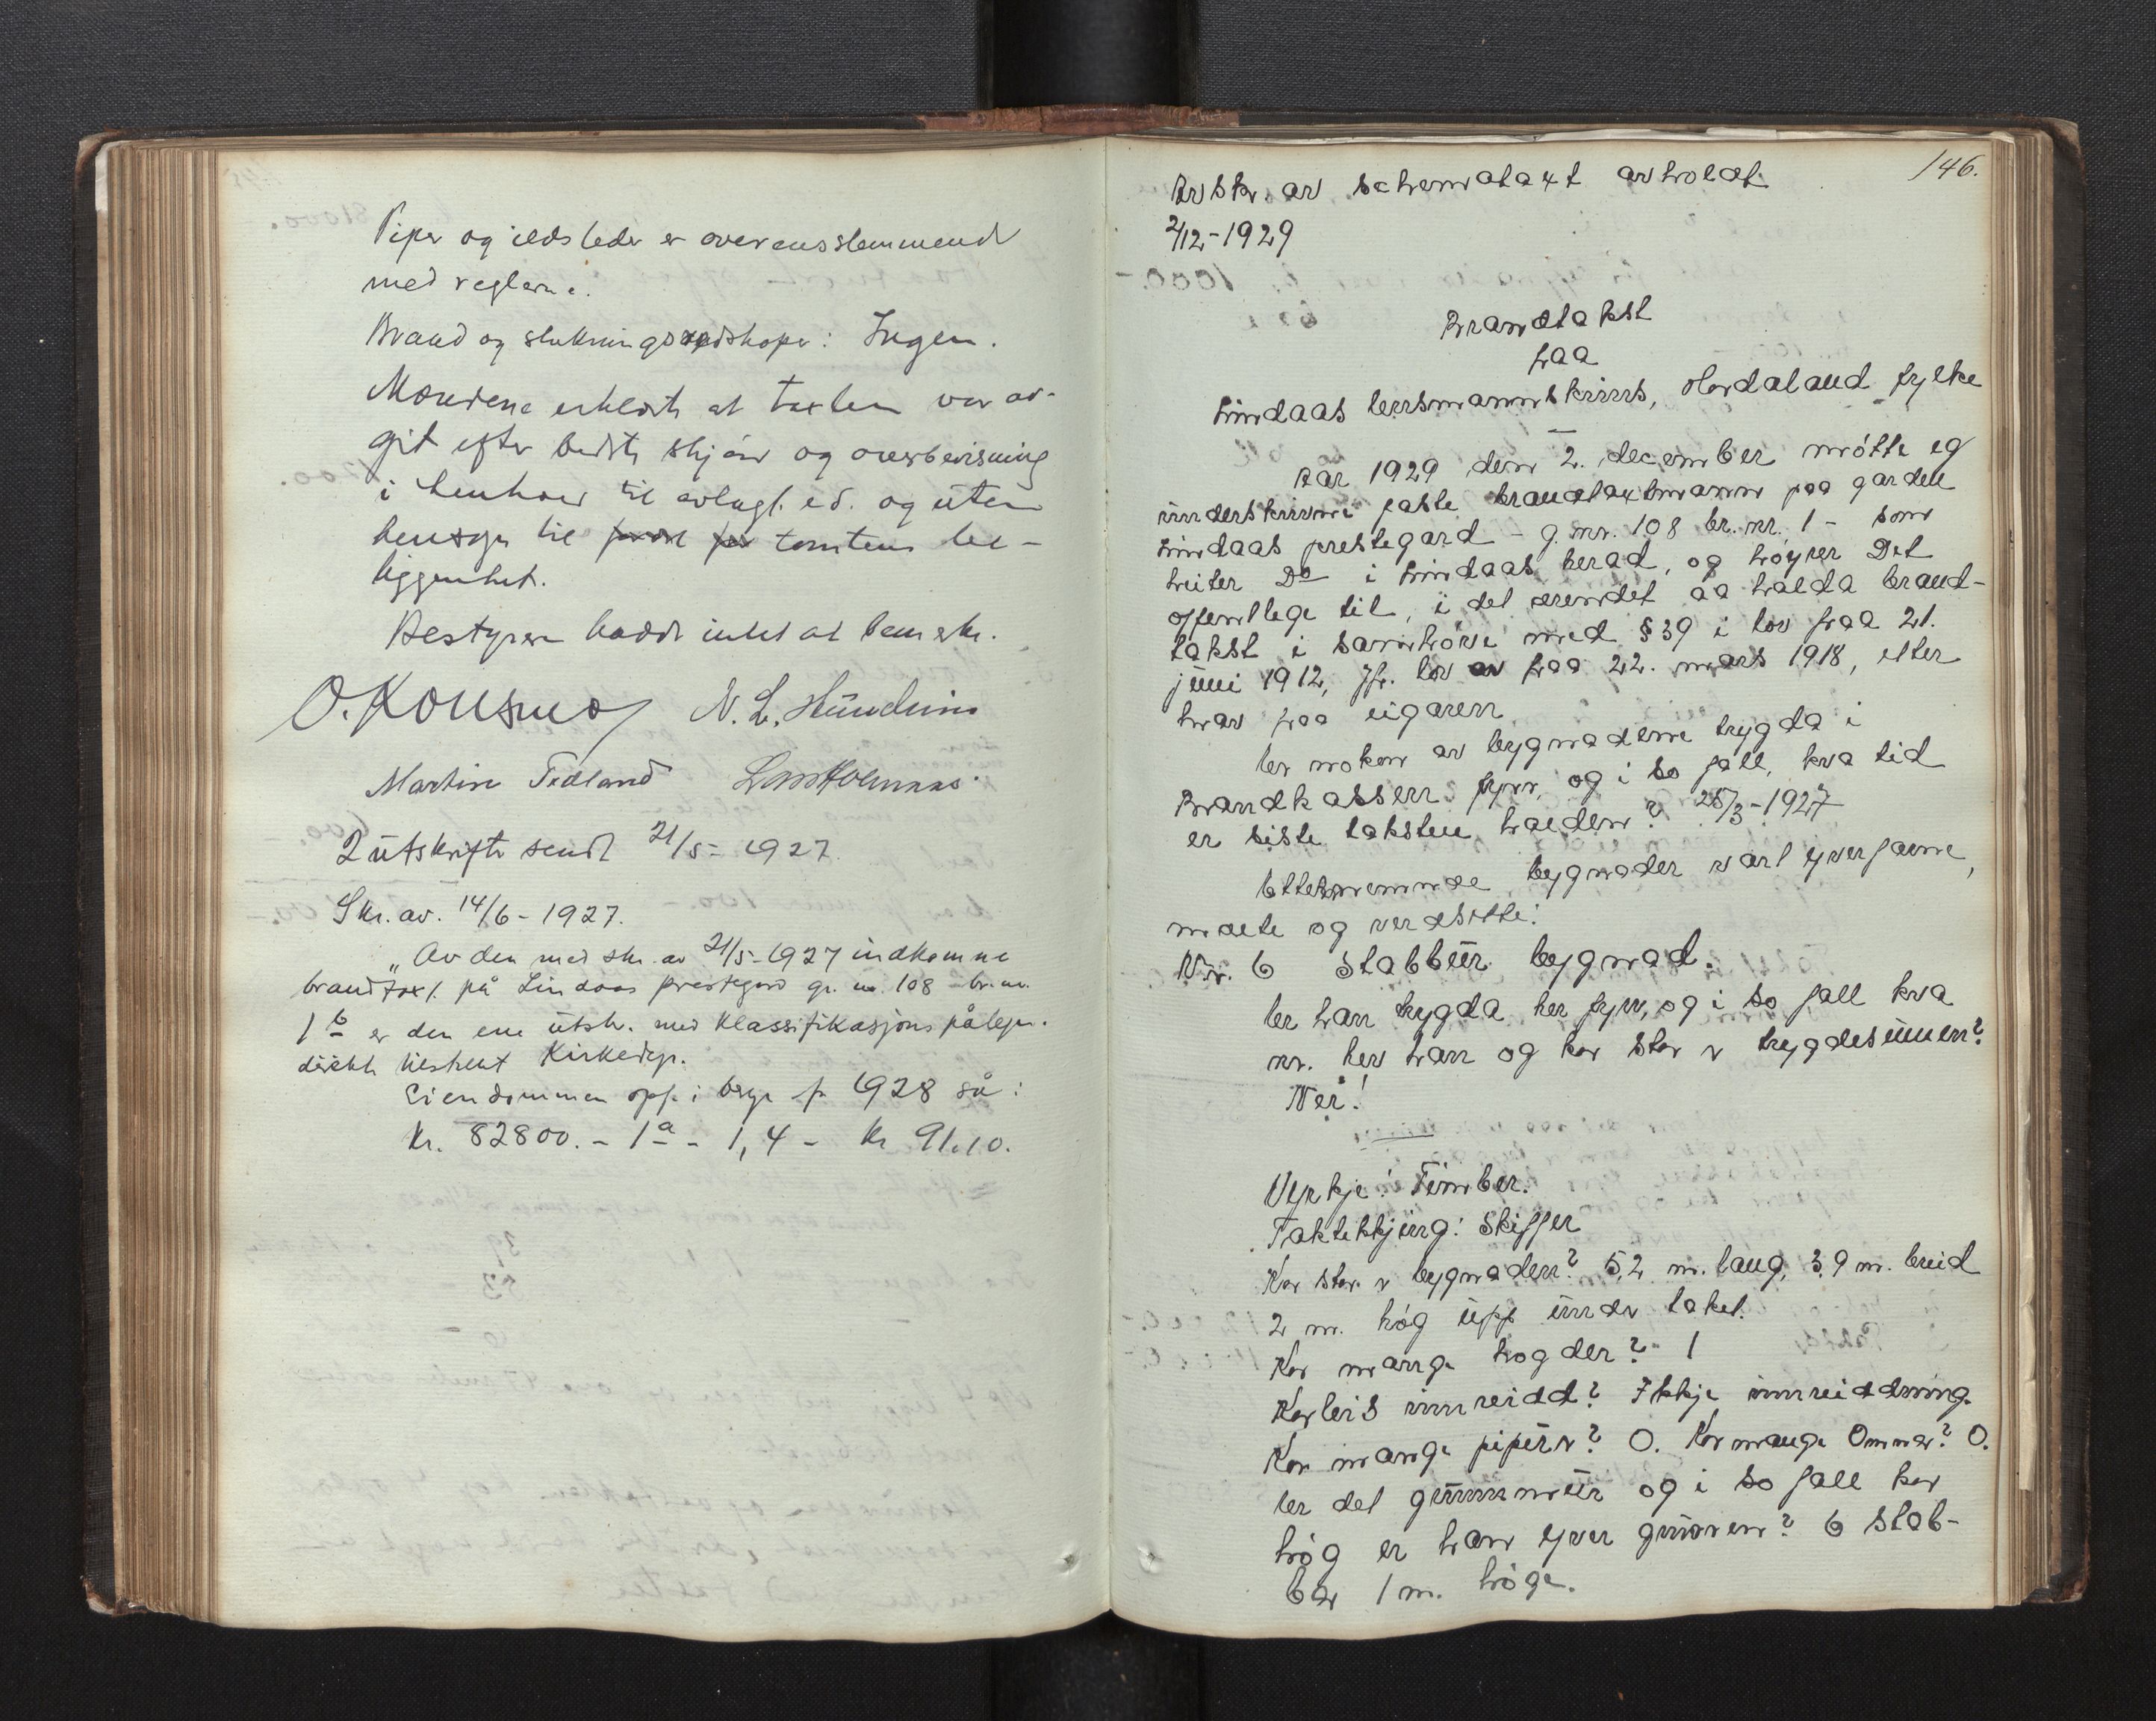 Piper og ildsteder er overensstemmende
med reglerne.
Brand og slukningsredskaper: Ingen.
Mændene erklærte at taxten var av-
git efter bedste skjøn og overbevisning
i henhold til avlagt ed. og uten
hensyn til tomtens be-
liggenhet.
Bestyreren hadde intet at bemerke.
O. Konsmo N. L. Hundvin
Martin Tedland
2 utskrifter sendt 21/5 - 1927.
Skr. av. 14/6 - 1927.
„Av den med skr. av 21/5 - 1927 indkomne
brandtaxt. på Lindaas prestegard gr. nr. 108 br. nr.
1 b er den ene utskr. med klassifikasjons påtegn.
direkte tilstillet Kirkedep.
Eiendommen opf. i bryr f. 1928 så:
Kr. 82800. - 1a - 1,4 - Kr 91.10.
146.
Avskr. av schemataxt avholdt
2/12 - 1929
Brandtakst
fraa
Lindaas lensmannskrins, Hordaland fylke
Aar 1929 den 2. december møtte eg
underskrivne faste brandtaxtmann paa garden
Lindaas prestegard - g. nr. 108 br. nr. 1 - som
heiter Do i Lindaas herad, og høyrer Det
offentlege til, i det ærendet aa halda brand-
takst i samhøve med § 39 i lov fraa 21.
juni 1912, jfr. lov av fraa 22. mars 1918, etter
krav fraa eigaren
Er nokon av bygnadene trygda i
Brandkassen fyrr, og i so fall, kva tid
er siste taksten halden? 28/3 - 1927
Etternemnde bygnader vart yverfarne,
maelte og verdsette:
Nr. 6 Stabbur bygnad.
Er han trygda her fyrr, og i so fall kva
nr. hev han og kor stor er trygdesumen?
Nei!
Vyrkje: Timber.
Taktekkjing: Skiffer
Kor stor er bygnaden? 5,2 m. lang, 3,9 m. breid
2 m. høg upp under taket.
Kor mange høgder? 1
Korleis innreidd? Ikkje innreidding.
Kor mange pipur? 0. Kor mange Omnar? 0.
Er det grunnmur og i so fall kor
høg er han yver grunnen? 6 stab-
bar 1 m. høge.